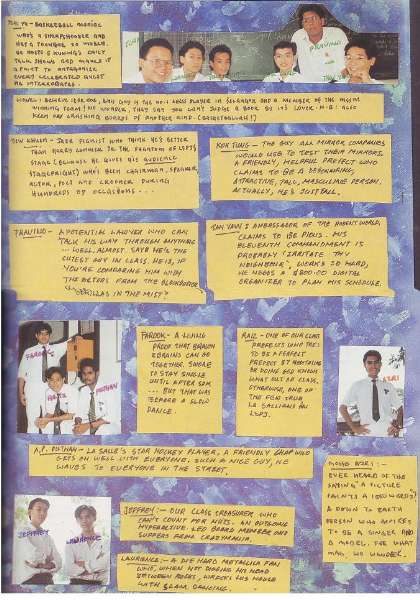 BASKETBALL MANIAC
WHO'S A SHARPSHOOTER AND
HE HOSTS 5 KUNING'S DAILY
TALK SHOWS AND MAKES IT
A POINT TO ANTAGONISE
EVERY CELEBRATED GUEST
HE INTERROGATES.
PLAYER IN SELANGOR AND A MEMBER OF THE MOVIE
THEY SAY YOU CAN'T JUDGE A BOOK BY IT'S COVER. N.B: ALSO
KEEN ON CRASHING BOARDS OF ANOTHER KIND. (BASKETBALLAH!)
JAZZ PIANIST WHO THINK HE'S BETTER
THAN HARRY CONNICK JR. THE PHANTOM OF LSPJ'S
STAGE (BECAUSE HE GIVES HIS AUDIENCE
STAGEFRIGHT) WHO'S BEEN CHAIRMAN, SPEAKER,
ACTOR, POET AND CROONER DURING
HUNDREDS OF OCCASIONS...
KOK TUNG:- THE GUY ALL MIRROR COMPANIES
WOULD USE TO TEST THEIR MIRRORS.
A FRIENDLY, HELPFUL PREFECT WHO
CLAIMS TO BE A DEBONAIRING,
ATTRACTIVE, TALL, MASCULINE PERSON.
ACTUALLY, HE'S JUST TALL.
A POTENTIAL LAWYER WHO CAN
TALK HIS WAY THROUGH ANYTHING
... WELL, ALMOST. SAYS HE'S THE
CUTEST GUY IN CLASS. HE IS, IF
YOU'RE COMPARING HIM WITH
THE ACTORS FROM THE BLOCKBUSTER
"GORILLAS IN THE MIST"?
AMBASSADOR OF THE PARENT WORLD,
CLAIMS TO BE PIOUS. HIS
ELEVENTH COMMANDMENT IS
PROBABLY "IRRITATE THY
NEIGHBOUR". WORKS SO HARD,
HE NEEDS A $800.00 DIGITAL
ORGANIZER TO PLAN HIS SCHEDULE.
FAROOK
MUTHAN
AZRI
FAROOK:- A LIVING
PROOF THAT BRAWN
& BRAINS CAN BE
TOGETHER. SWORE
TO STAY SINGLE
UNTIL AFTER SPM
... BUT THAT WAS
BEFORE A SLOW
DANCE.
ONE OF OUR CLASS
PREFECTS WHO TRIES
TO BE A PERFECT
PREFECT BY
OR DOING GOD KNOWS
WHAT OUT OF CLASS.
OTHERWISE, ONE OF
THE FEW TRUE
LA SALLIANS IN
LSPJ.
LA SALLE'S STAR HOCKEY PLAYER. A FRIENDLY CHAP WHO
GETS ON WELL WITH EVERYONE. SUCH A NICE GUY, HE
WAVES TO EVERYONE IN THE STREET.
EVER HEARD OF THE
SAYING "A PICTURE
PAINTS A 1000 WORDS"?
A DOWN TO EARTH
PERSON WHO ASPIRES
TO BE A SINGER AND
A MODEL. FOR WHAT
MAG, WE WONDER.
JEFFREY
LAWRENCE
JEFFREY:- OUR CLASS TREASURER WHO
CAN'T COUNT FOR NUTS. AN OUTGOING
HYPERACTIVE LEO BOARD MEMBER AND
SUFFERS FROM CRAZYMANIA.
LAWRENCE:- A DIE HARD METALLICA FAN
WHO, WHEN NOT BANGING HIS HEAD
BETWEEN ROCKS, WRECKS HIS HOUSE
WITH SLAM DANCING.